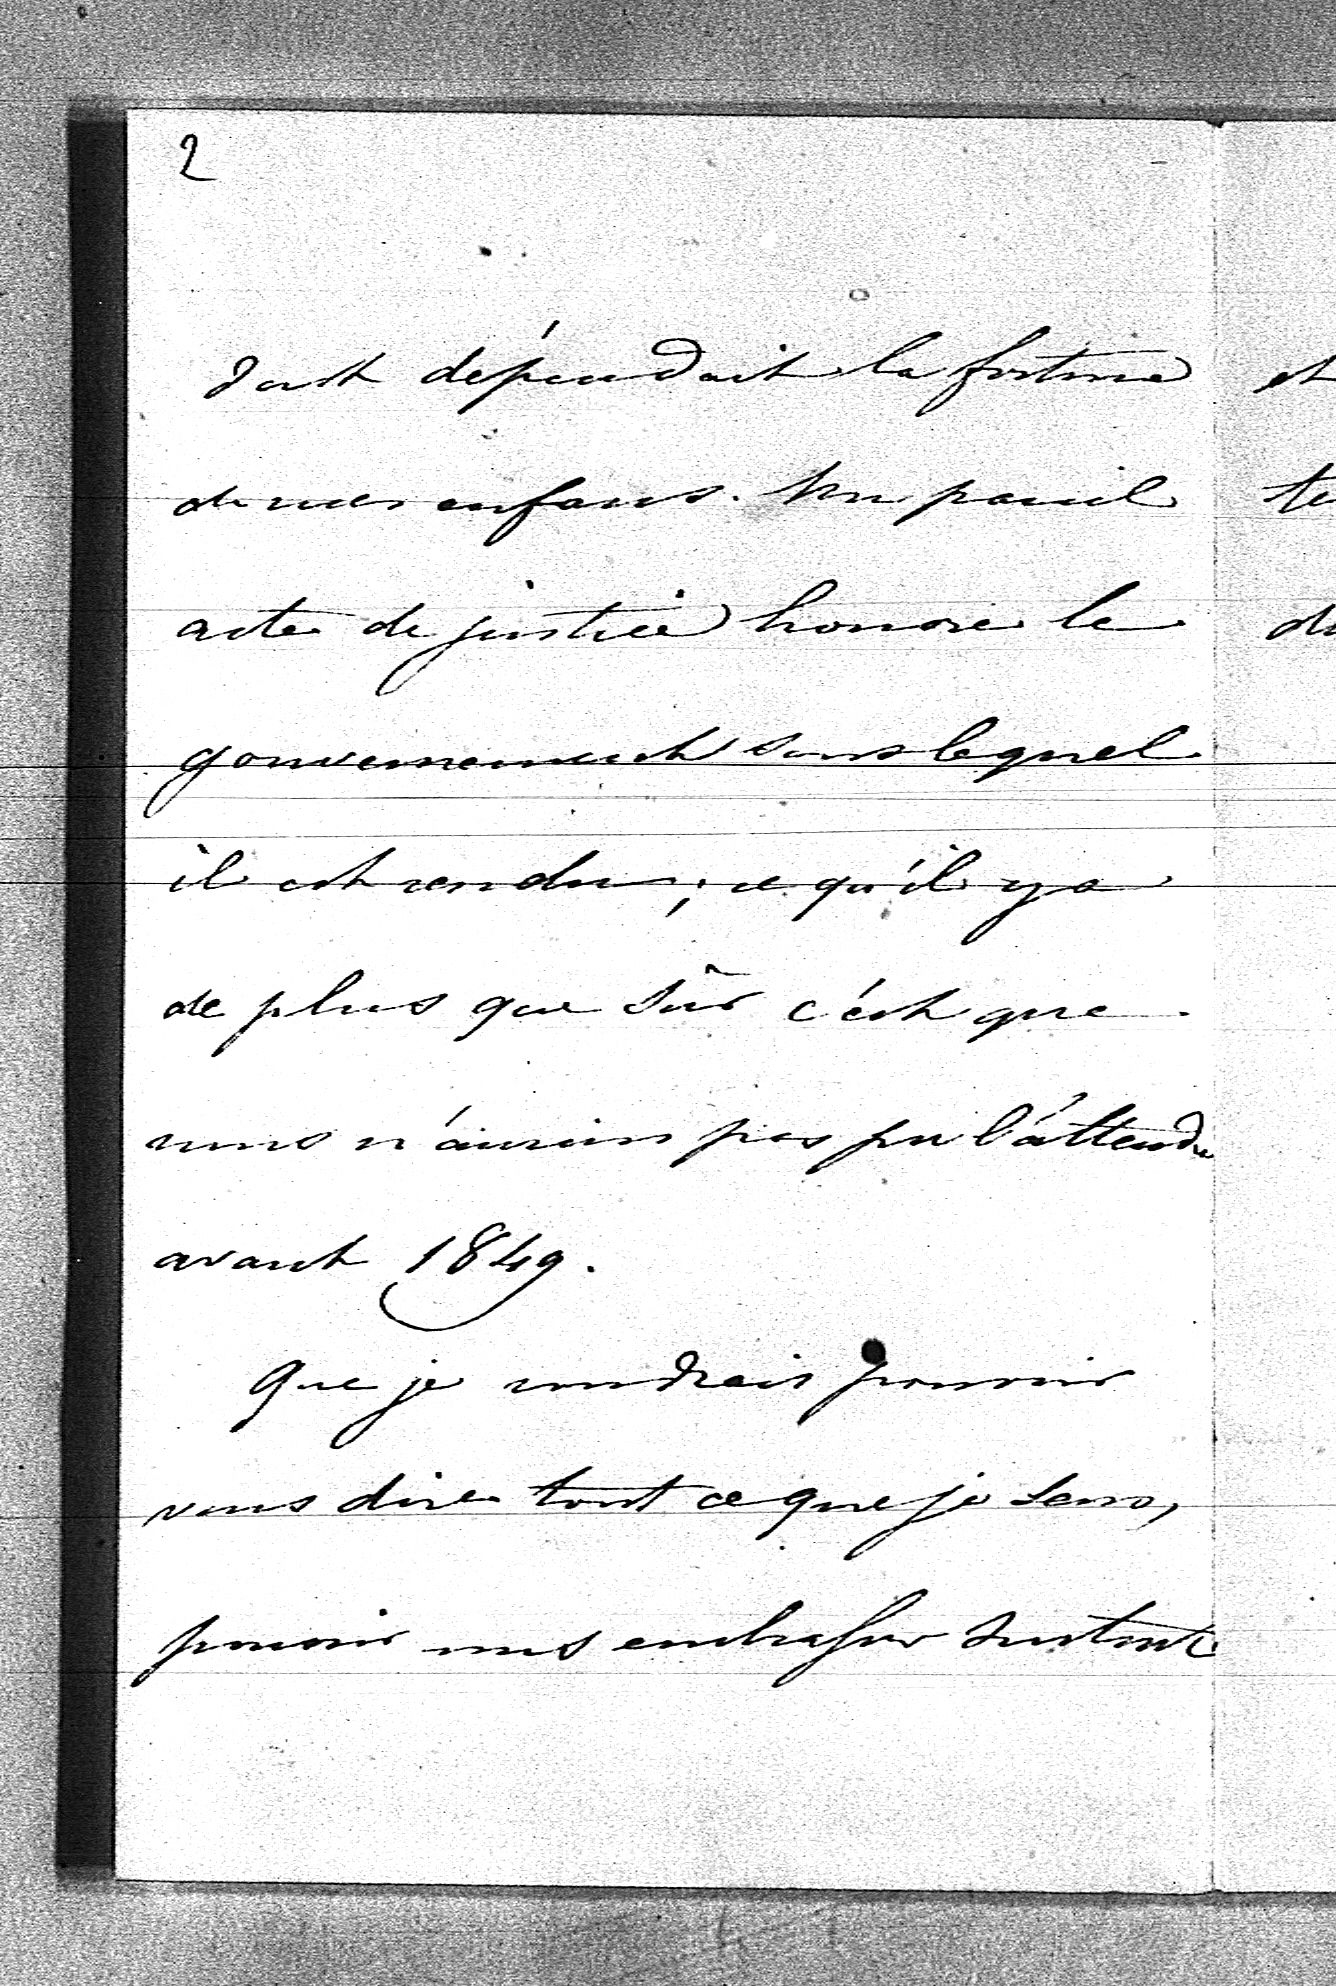 2
dont dépendait la fortune
de mes enfans. Un pareil
acte de justice honore le
gouvernement sous lequel
il est rendu; ce qu'il y a
de plus que sûr c'est que
nous n'aurions pas pu l'attendre
avant 1849.
Que je voudrais pouvoir
vous dire tout ce que je sens,
pouvoir vous embrasser surtout